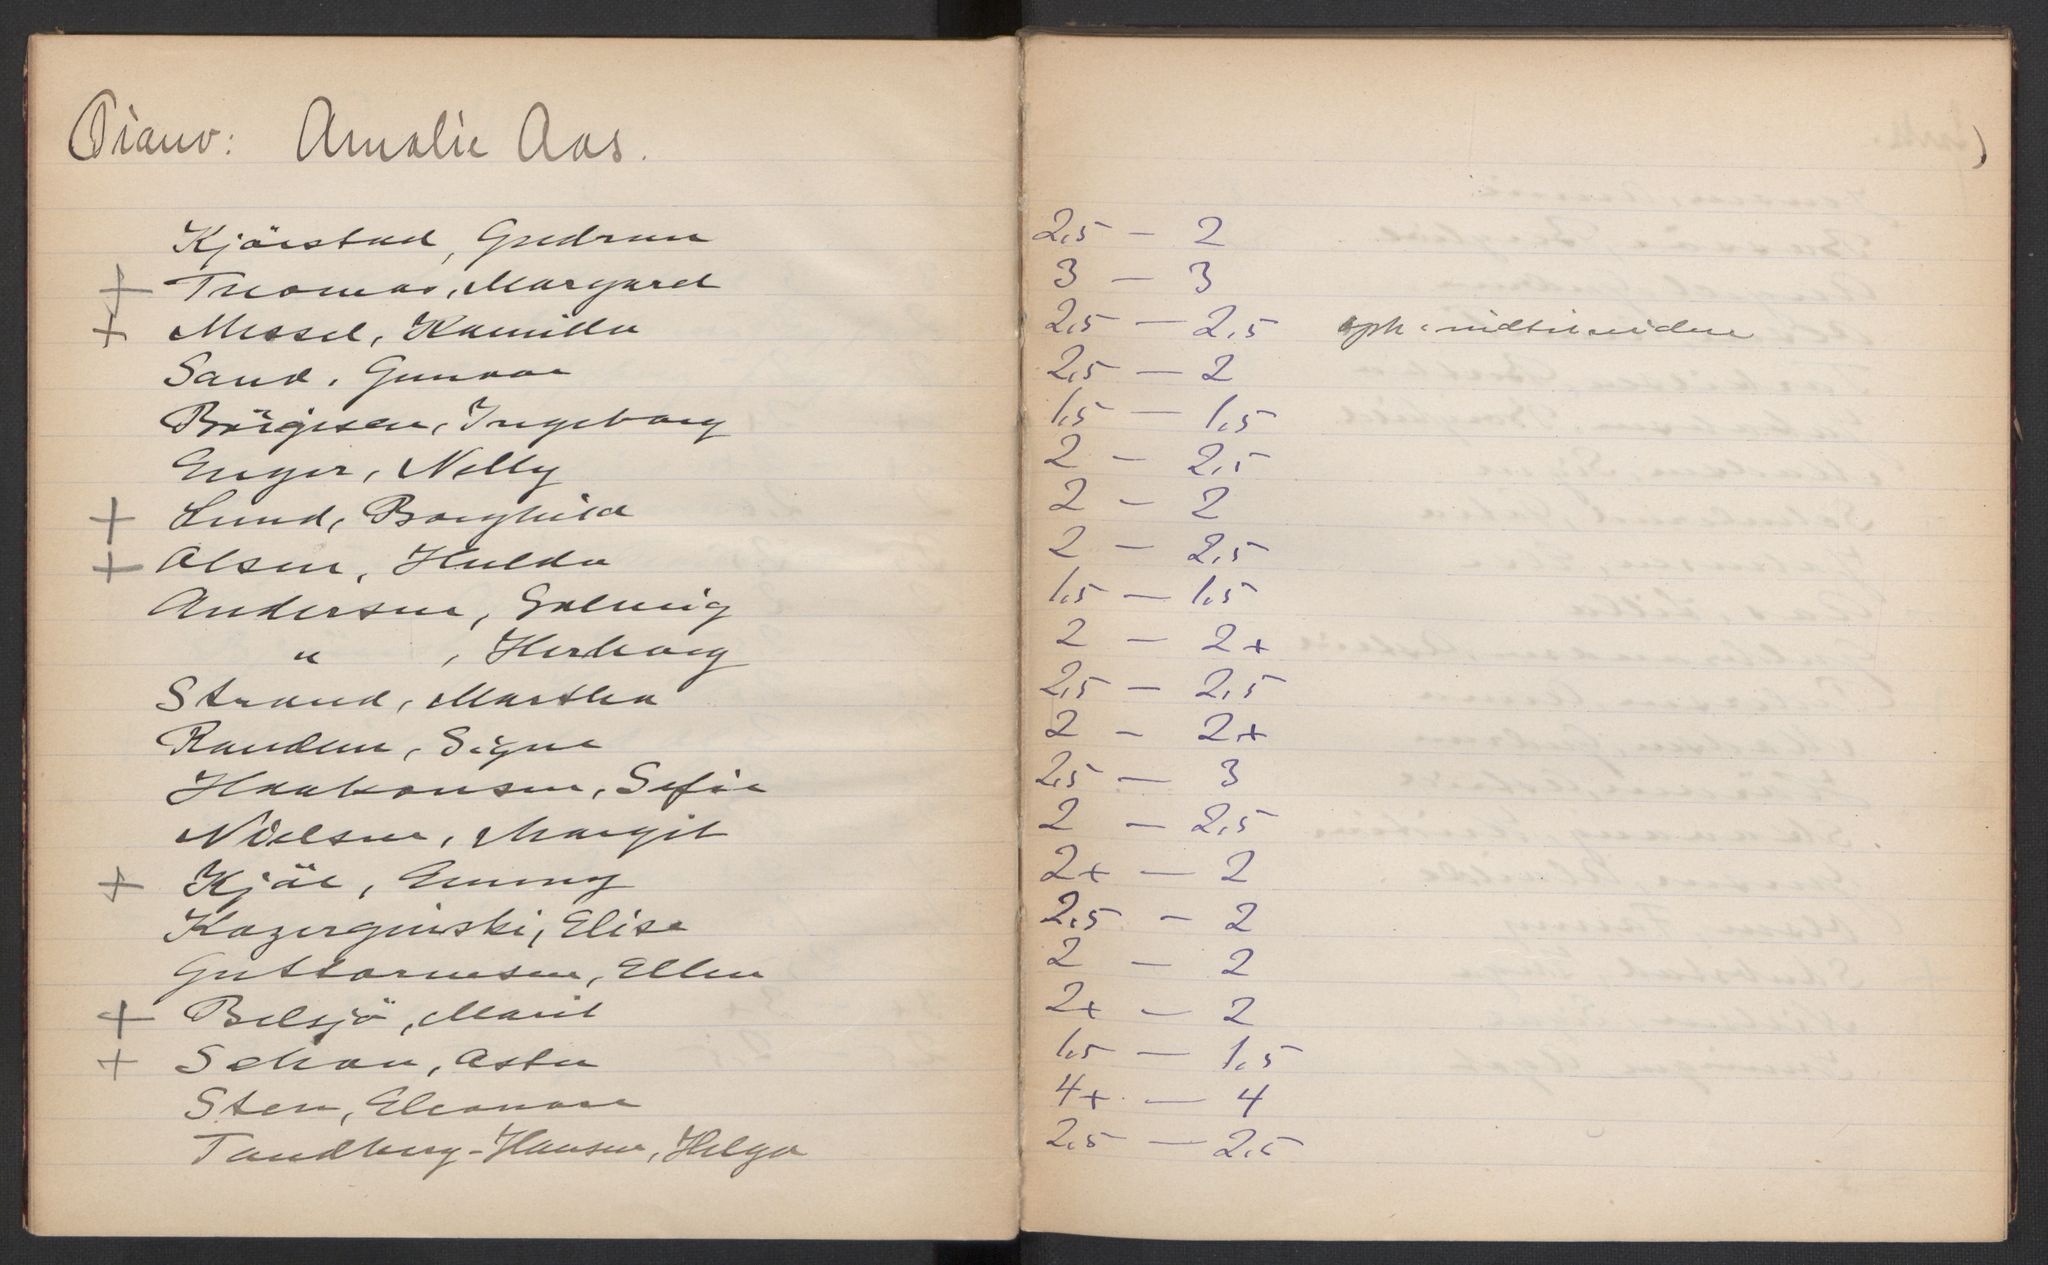 Piano: Amalie Aas.
Kjörstad, Gudrun 2,5 — 2
+ Thomas, Margard 3 — 3
+ Messel, Kamilla 2,5 — 2,5
Sand, Gunvor 2,5 — 2
Börgesen, Ingeborg 1,5 — 1,5
Enger, Nelly 2 — 2,5
+ Lund, Borghild 2 — 2
+ Olsen, Hulda 2 — 2,5
Andersen, Solveig 1,5 — 1,5
" , Herborg 2 — 2+
Strand, Martha 2,5 — 2,5
Randem, Signe 2 — 2+
Haakonsen, Sofie 2,5 — 3
Nielsen, Margit 2 — 2,5
+ Kjöl, Emmy 2+ — 2
Kazerginski, Elise 2,5 — 2
Guttormsen, Ellen 2 — 2
+ Belsjö, Marit 2+ — 2
+ Schou, Asta 1,5 — 1,5
Sten, Eleonore 4+ — 4
Tandberg-Hansen, Helga 2,5 — 2,5